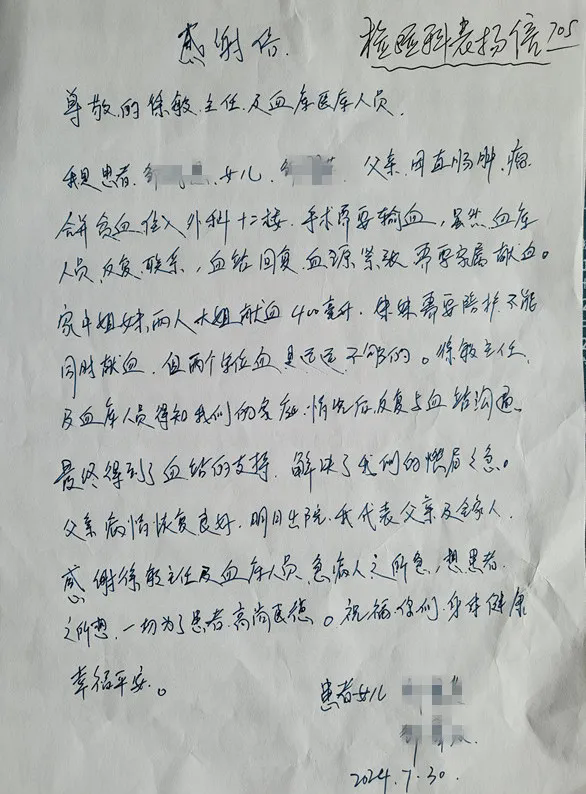 感谢信.
检验科表扬信705
尊敬的徐敏主任及血库医库人员.
我是患者.邹 女儿.邹 父亲.因直肠肿.瘤.
合并贫血.住入外科十二楼.手术需要输血,虽然血库
人员.反复.联系,血站回复.血源紧张 需要家属献血。
家中姐妹.两人大姐献血400毫升.妹妹需要陪护.不能
同时献血.但两个单位血是远远不够的。徐敏主任.
及血库人员得知我们的家庭.情况后.反复与血站沟通.
最终得到了血站的支持.解决了我们的燃眉之急。
父亲病情恢复良好.明日出院.我代表父亲及全家人.
感谢徐敏主任及血库人员.急病人之所急,想患者.
之所想.一切为了患者.高尚医德。祝福你们.身体健康
幸福平安。
患者女儿
2024.7.30.